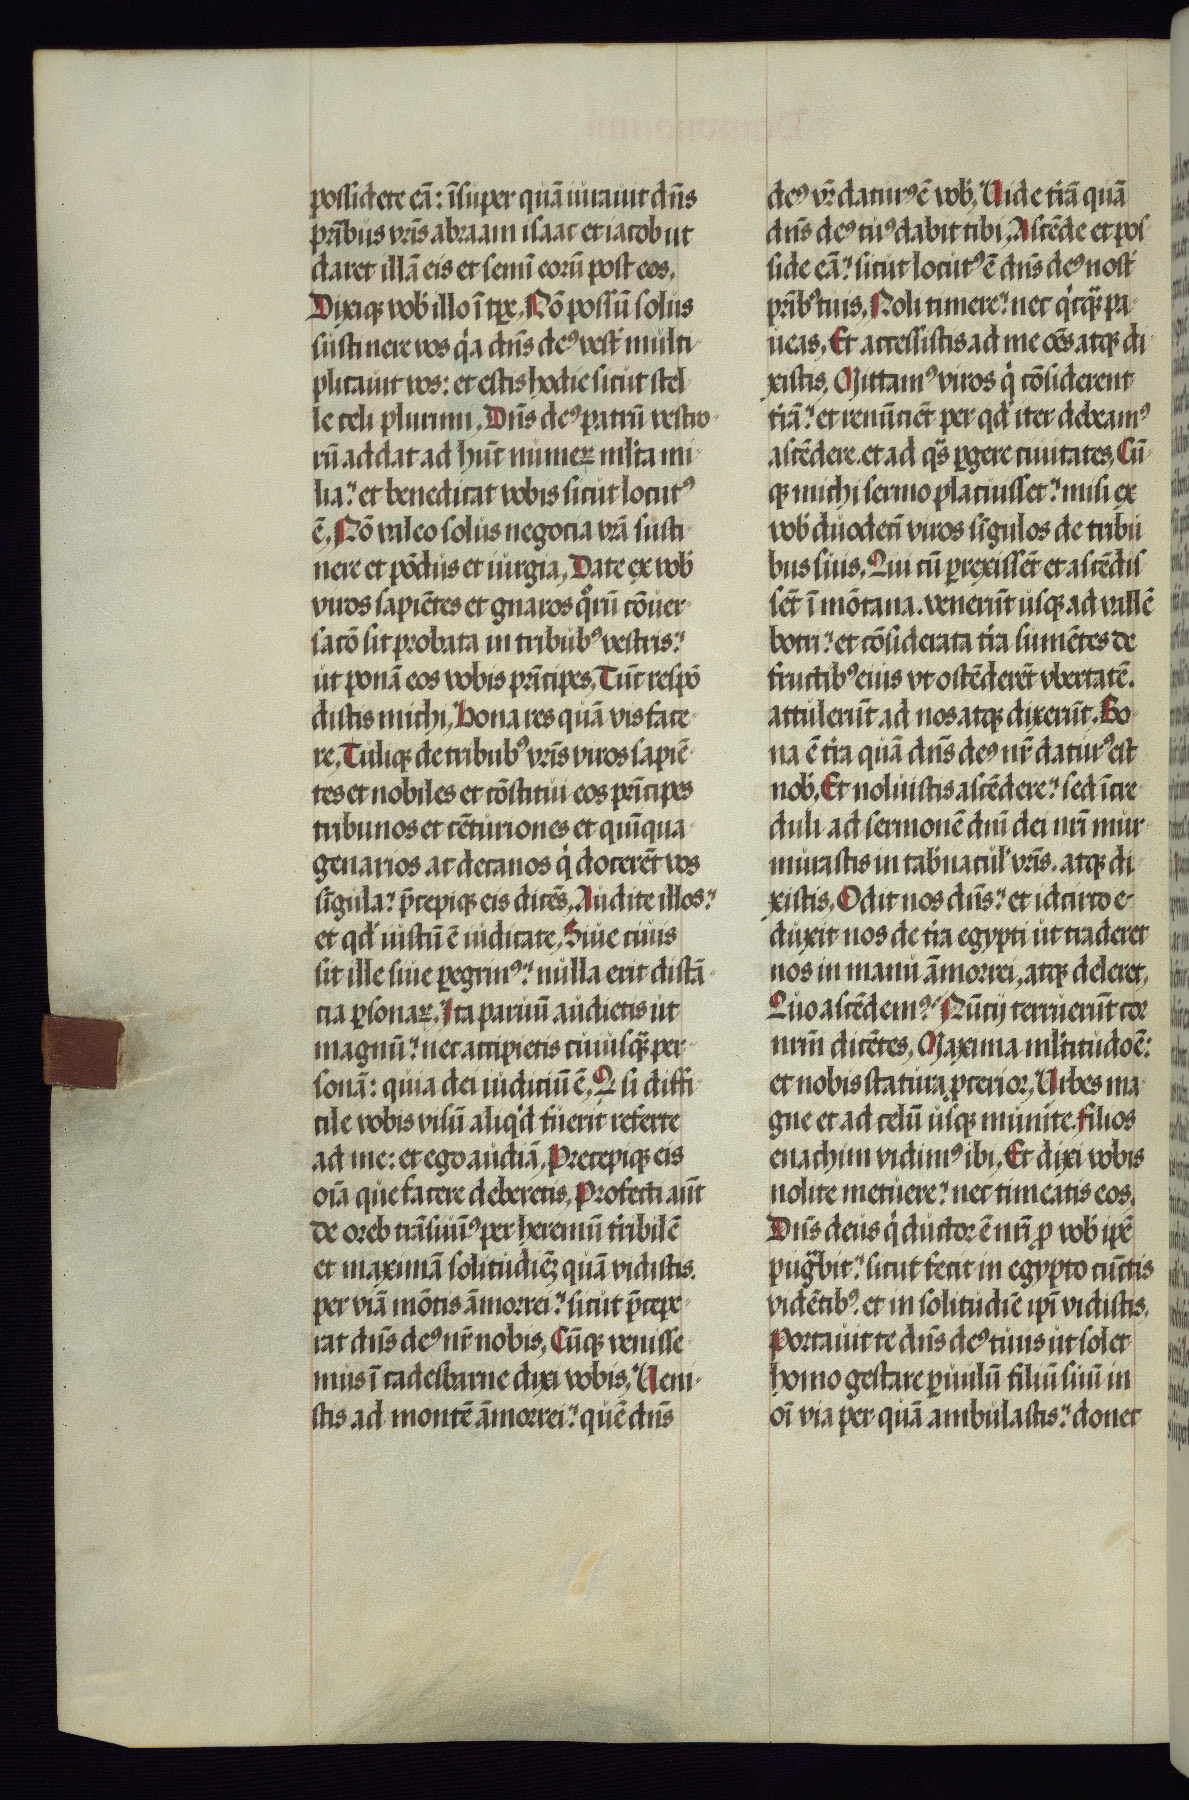 possidete eā: īsuper quā iurauit dn̄s
prībus vrīs abraam isaac et iacob ut
daret illā eis et semī eorū post eos.
Dixiqꝫ vob̄ illo ī tꝑe, Nō possū solus
sustinere vos q̇a dn̄s deꝰ vest̄ multi-
plicauit vos: et estis hodie sicut stel-
le celi plurimi, Dn̄s deꝰ patrū vestro-
rū addat ad hūc numeꝝ ml̄ta mi-
lia? et benedicat vobis sicut locutꝰ
ē, Nō valeo solus negocia vrā susti-
nere et pōdus et iurgia, Date ex vob̄
viros sapiētes et gnaros qͦrū cōuer-
satō sit probata in tribubꝰ vestris?
ut ponā eos vobis prīcipes, Tūc respō-
distis michi, Bona res quā vis face-
re, Tuliqꝫ de tribubꝰ vrīs viros sapiē-
tes et nobiles et cōstitui eos prīcipes
tribunos et cēturiones et quīqua-
genarios ac decanos q̇ docerēt vos
sīgula? p̄cepiqꝫ eis dicēs, Audite illos?
et qd̄ iustū ē iudicate, Siue ciuis
sit ille siue ꝑegrinꝰ? nulla erit distā-
tia ꝑsonaꝝ, Ita paruū audietis ut
magnū? nec accipietis cuiusqᷓꝫ per-
sonā: quia dei iudiciū ē, Ꝙ si diffi-
cile vobis visū aliqd̄ fuerit referte
ad me: et ego audiā, Precepiqꝫ eis
oīa que facere deberetis, Profecti aūt
de oreb trāsiuimꝰ per heremū tribilē
et maximā solitudiēꝫ quā vidistis.
per viā mōtis āmorrei? sicut p̄cepe-
rat dn̄s deꝰ nr̄ nobis, Cūqꝫ venisse-
mus ī cadesbarne dixi vobis, Ueni-
stis ad montē āmorrei? quē dn̄s
deꝰ vr̄ daturꝰ ē vob̄, Uide tr̄ā quā
dn̄s deꝰ tuꝰ dabit tibi, Ascēde et pos-
side eā? sicut locutꝰ ē dn̄s deꝰ nost̄
prībꝰ tuis, Noli timere? nec q̇cqᷓꝫ pa-
ueas, Et accessistis ad me oēs atqꝫ di-
xistis, Mittamꝰ viros q̇ cōsiderent
tr̄ā? et renūciēt per qd̄ iter debeamꝰ
ascēdere. et ad qᷓs ꝑgere ciuitates, Cū-
qꝫ michi sermo placuisset? misi ex
vob̄ duodecī viros sīgulos de tribu-
bus suis, Qui cū ꝑrexissēt et ascēdis-
sēt ī mōtana. venerūt usqꝫ ad vallē
botri? et cōsiderata tr̄a sumētes de
fructibꝰ eius vt ostēderēt vbertatē.
attulerūt ad nos atqꝫ dixerūt. Bo-
na ē tr̄a quā dn̄s deꝰ nr̄ daturꝰ est
nob̄, Et noluistis ascēdere? sed īcre-
duli ad sermonē dnī dei nrī mur-
murastis in tab̄nacul̄ vrīs. atqꝫ di-
xistis, Odit nos dn̄s? et idcirco e-
duxit nos de tr̄a egypti ut traderet
nos in manu āmorrei, atqꝫ deleret,
Quo ascēdemꝰ? Nūcij terruerūt cor
nrm̄ dicētes, Maxima ml̄titudo ē:
et nobis statura ꝓcerior, Urbes ma-
gne et ad celū usqꝫ munite. filios
enachim vidimꝰ ibi, Et dixi vobis
nolite metuere? nec timeatis eos,
Dn̄s deus q̇ ductor ē nrī ꝓ vob̄ ipē
pugᷓbit? sicut fecit in egypto cūctis
vidētibꝰ. et in solitudiē ipī vidistis,
Portauit te dn̄s deꝰ tuus ut solet
homo gestare ꝑuulū filiū suū in
oī via per quā ambulastis? donec